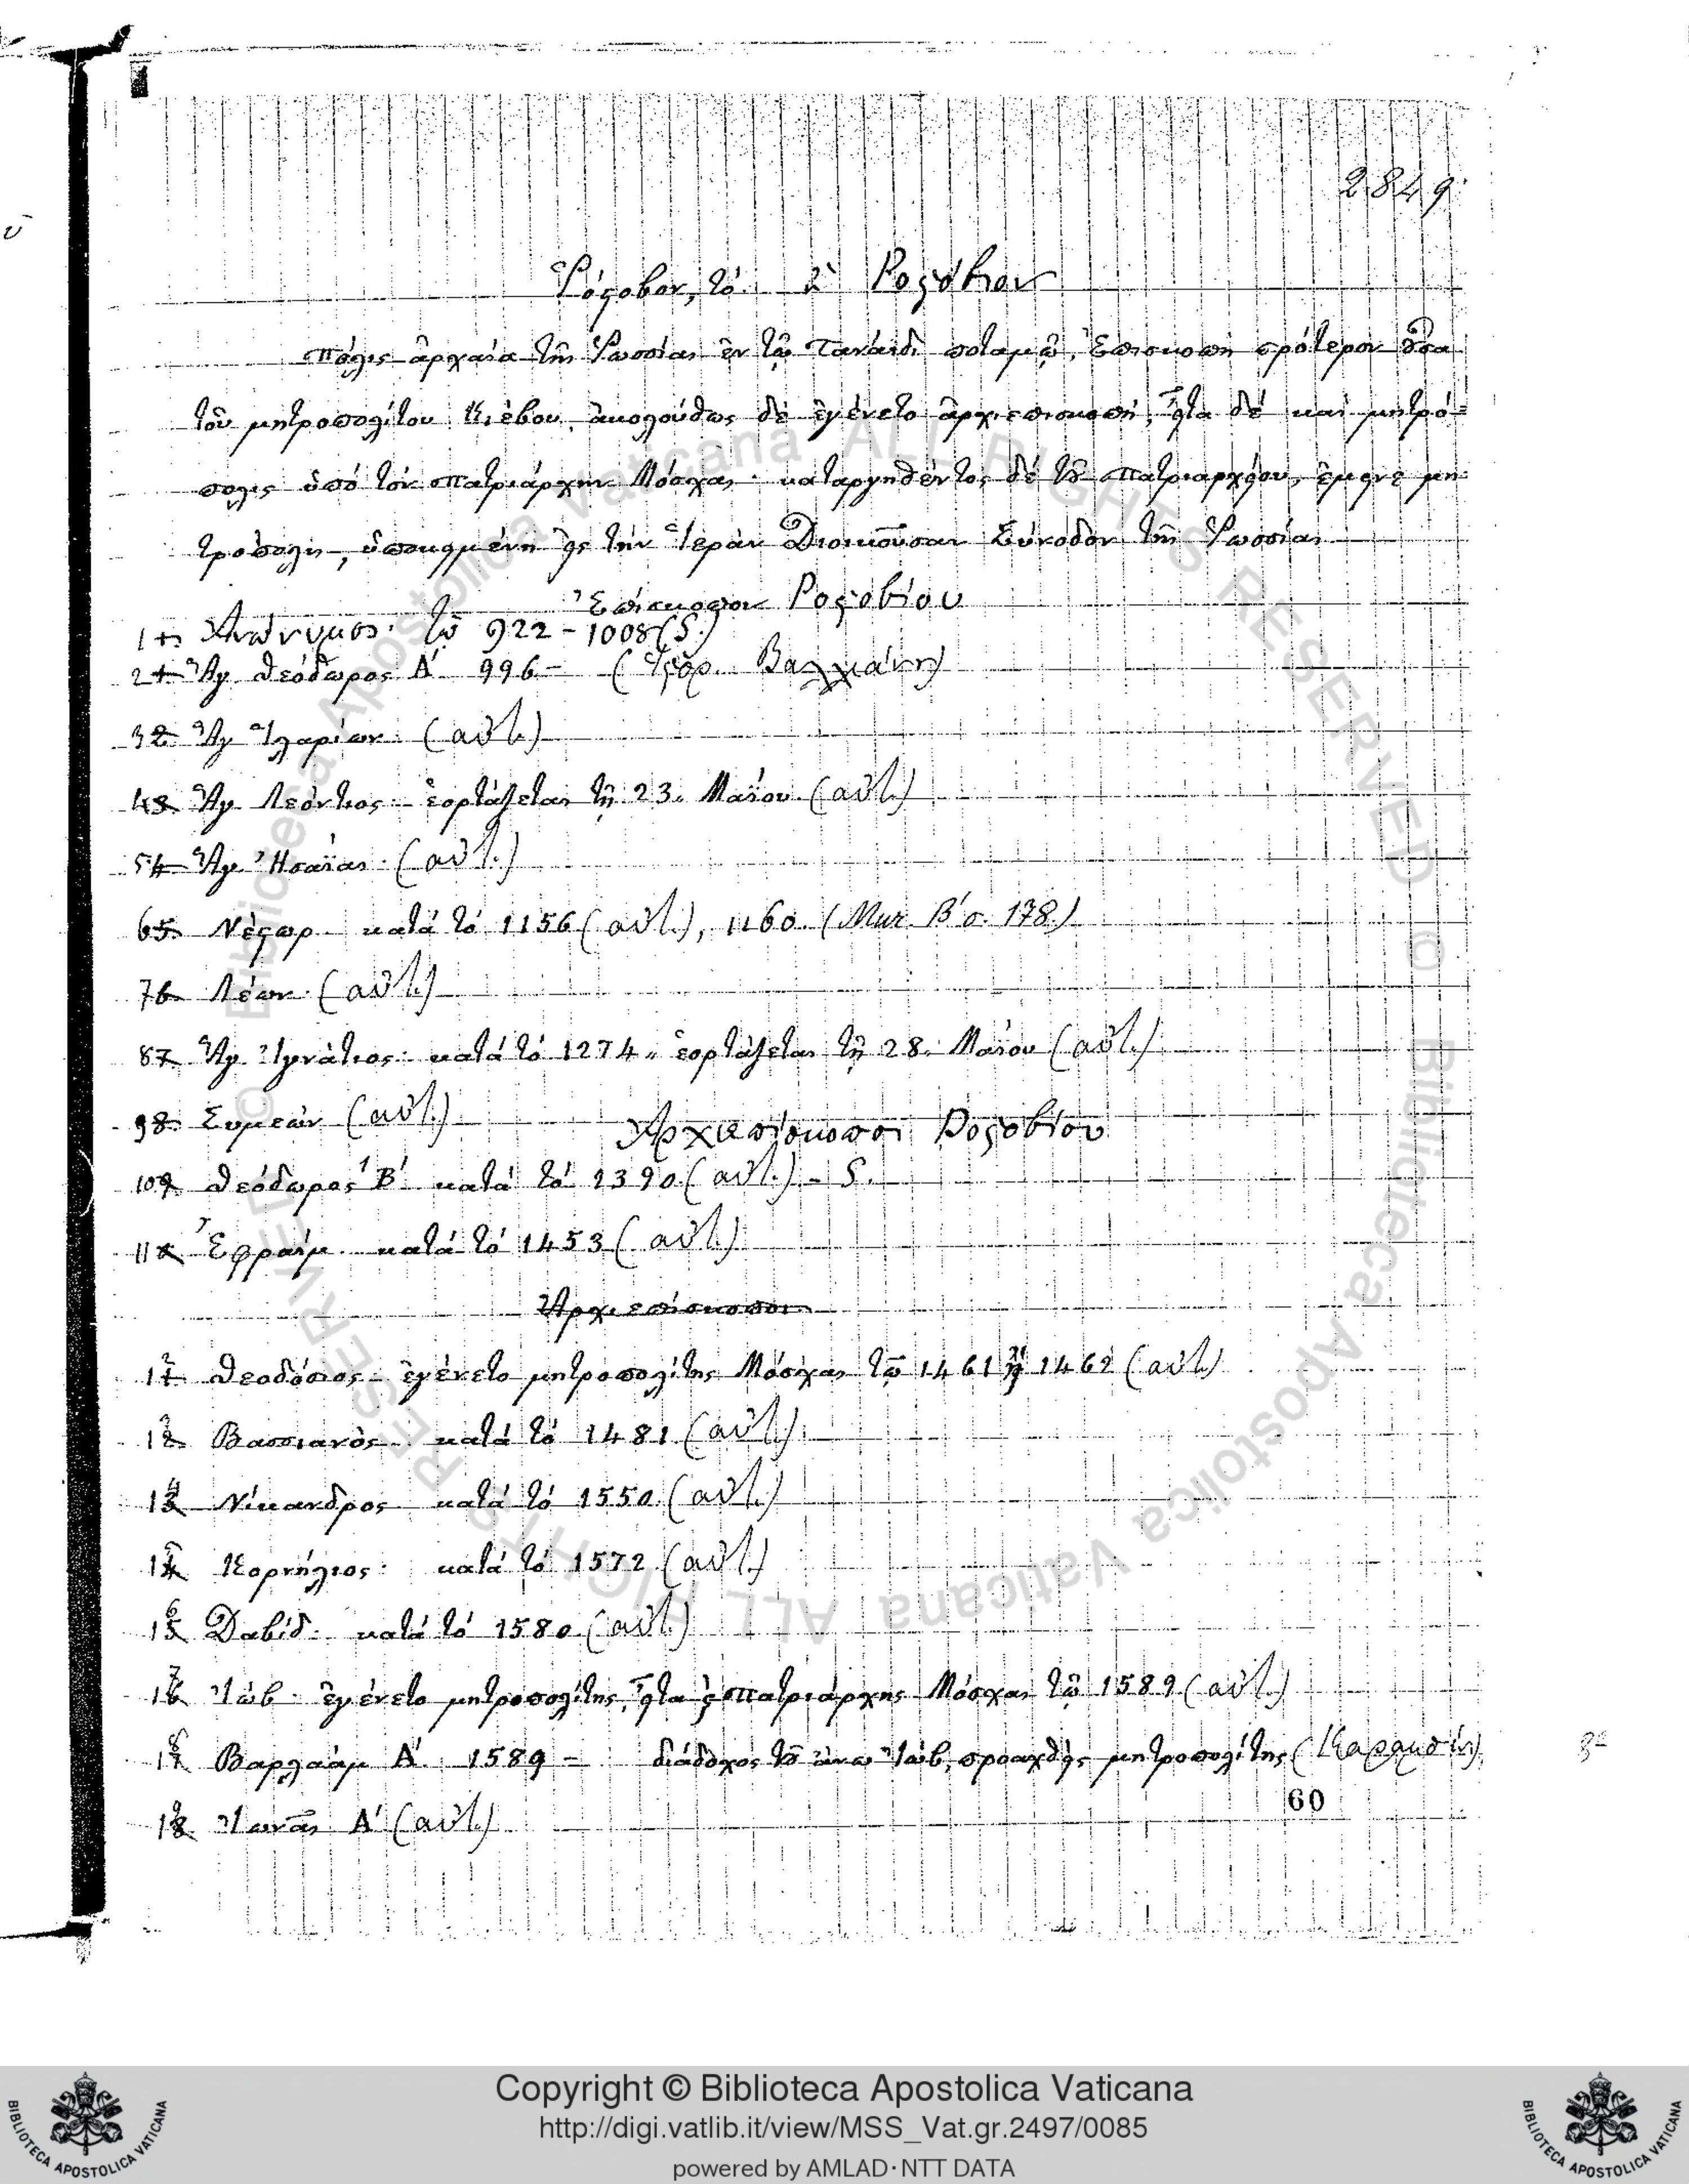 2849
Ῥόστοβον, τό. ἢ Ροστόβιον
πόλις ἀρχαία τῆς Ῥωσσίας ἐν τῷ Τανάϊδι ποταμῷ, Ἐπισκοπὴ πρότερον οὖσα
τοῦ μητροπολίτου Κιέβου, ἀκολούθως δὲ ἐγένετο ἀρχιεπισκοπή, εἶτα δὲ καὶ μητρό-
πολις ὑπὸ τὸν πατριάρχην Μόσχας· καταργηθέντος δὲ τοῦ πατριαρχείου, ἔμεινε μη-
τρόπολις, ὑποκειμένη εἰς τὴν Ἱερὰν Διοικοῦσαν Σύνοδον τῆς Ῥωσσίας
Ἐπίσκοποι Ροστοβίου
1 Ἀνώνυμος. τῷ 922 - 1008 (S.)
2 Ἅγ. Θεόδωρος Α΄ 996 - (Ἱστορ. Βαλχιάνη)
3 Ἅγ. Ἱλαρίων (αὐτ.)
4 Ἅγ. Λεόντιος - ἑορτάζεται τῇ 23. Μαΐου (αὐτ.)
5 Ἅγ. Ἡσαΐας. (αὐτ.)
6 Νέστωρ - κατὰ τὸ 1156 (αὐτ.), 1160. (Mur. Β΄ σ. 178.)
7 Λέων. (αὐτ.)
8 Ἅγ. Ἰγνάτιος· κατὰ τὸ 1274. ἑορτάζεται τῇ 28. Μαΐου (αὐτ.)
9 Συμεών (αὐτ.)
Ἀρχιεπίσκοποι Ροστοβίου
10 Θεόδωρος Β΄ κατὰ τὸ 1390. (αὐτ.) - S.
11 Ἐφραίμ. κατὰ τὸ 1453 (αὐτ.)
Ἀρχιεπίσκοποι
12 Θεοδόσιος - ἐγένετο μητροπολίτης Μόσχας τῷ 1461 ἢ 1462 (αὐτ.)
13 Βασσιανός. κατὰ τὸ 1481 (αὐτ.)
14 Νίκανδρος κατὰ τὸ 1550. (αὐτ.)
15 Κορνήλιος. κατὰ τὸ 1572. (αὐτ.)
16 Δαβίδ. κατὰ τὸ 1580. (αὐτ.)
17 Ἰώβ. ἐγένετο μητροπολίτης, εἶτα πατριάρχης Μόσχας τῷ 1589 (αὐτ.)
18 Βαρλαὰμ Α΄. 1589 - διάδοχος τοῦ ἄνω Ἰώβ, προαχθεὶς μητροπολίτης
60
19 Ἰωνᾶς Α΄ (αὐτ.)
© Biblioteca Apostolica Vaticana ALL RIGHTS RESERVED © Biblioteca Apostolica Vaticana ALL RIGHTS RESERVED
Copyright © Biblioteca Apostolica Vaticana
http://digi.vatlib.it/view/MSS_Vat.gr.2497/0085
powered by AMLAD·NTT DATA
BIBLIOTECA APOSTOLICA VATICANA
BIBLIOTECA APOSTOLICA VATICANA